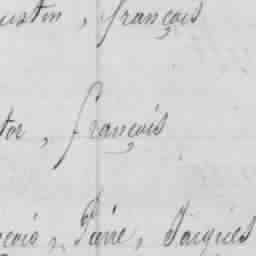 ustin, françois
tor, françois
nçois, Pierre, Jacques